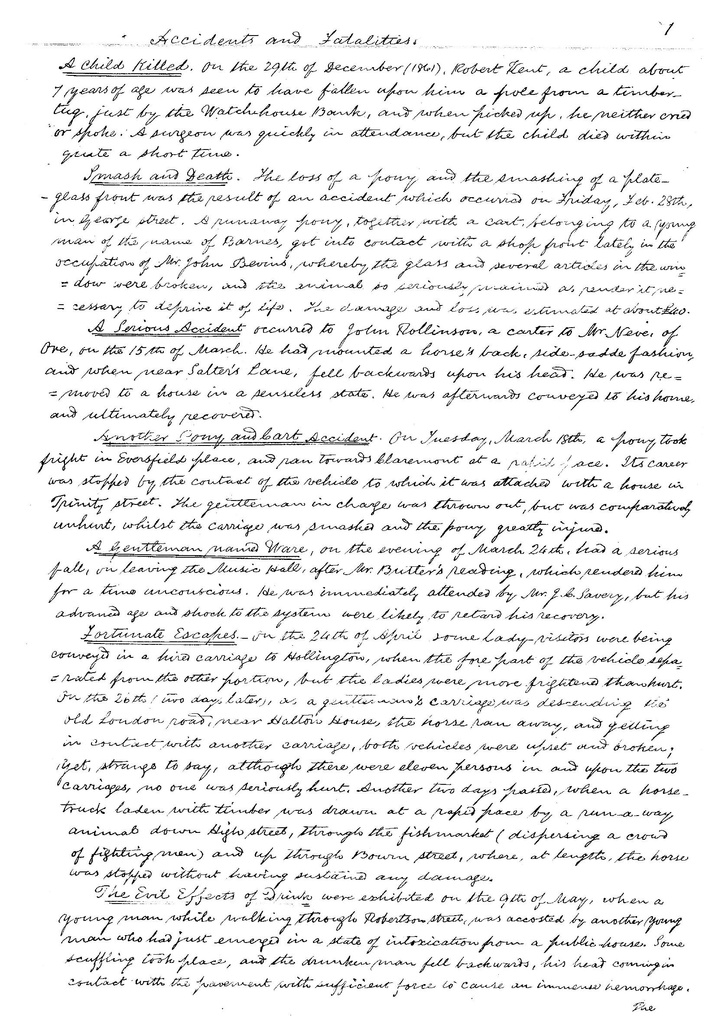 1
Accidents and Fatalities.
A Child Killed. On the 29th of December (1861), Robert Kent, a child about
7 years of age was seen to have fallen upon him a pole from a timber-
tug, just by the Watch-house Bank, and when picked up, he neither cried
or spoke. A surgeon was quickly in attendance, but the child died within
quite a short time.
Smash and Death. The loss of a pony and the smashing of a plate-
-glass front was the result of an accident which occurred on Friday, Feb. 28th,
in George street. A runaway pony, together with a cart, belonging to a young
man of the name of Barnes, got into contact with a shop front lately in the
occupation of Mr. John Bevins, whereby the glass and several articles in the win-
=dow were broken, and the animal so seriously maimed as render it ne=
=cessary to deprive it of life. The damage and loss was estimated at about £40.
A Serious Accident occurred to John Rollinson, a carter to Mr. Neve, of
Ore, on the 15th of March. He had mounted a horse's back, side-sadde fashion,
and when near Salter's Lane, fell backwards upon his head. He was re=
=moved to a house in a senseless state. He was afterwards conveyed to his home,
and ultimately recovered.
Another Pony and Cart Accident. On Tuesday, March 18th, a pony took
fright in Eversfield place, and ran towards Claremont at a rapid pace. Its career
was stopped by the contact of the vehicle to which it was attached with a house in
Trinity street. The gentleman in charge was thrown out, but was comparatively
unhurt, whilst the carriage was smashed and the pony greatly injured.
A Gentleman named Ware, on the evening of March 24th, had a serious
fall, on leaving the Music Hall, after Mr. Butter's reading, which rendered him
for a time unconscious. He was immediately attended by Mr. J. C. Savery, but his
advanced age and shock to the system were likely to retard his recovery.
Fortunate Escapes.- On the 24th of April some lady-visitors were being
conveyed in a hired carriage to Hollington, when the fore part of the vehicle sepa-
=rated from the other portion, but the ladies were more frightened than hurt.
On the 26th (two days later), as a gentleman's carriage was descending the
old London road, near Halton House, the horse ran away, and getting
in contact with another carriage, both vehicles were upset and broken;
yet, strange to say, although there were eleven persons in and upon the two
carriages, no one was seriously hurt. Another two days passed, when a horse-
truck laden with timber was drawn at a rapid pace by a run-a-way
animal down High street, through the fishmarket (dispersing a crowd
of fighting men) and up through Bourn street, where, at length, the horse
was stopped without having sustained any damage.
The Evil Effects of Drink were exhibited on the 9th of May, when a
young man while walking through Robertson street, was accosted by another young
man who had just emerged in a state of intoxication from a public-house. Some
scuffling took place, and the drunken man fell backwards, his head coming in
contact with the pavement with sufficient force to cause an immense hemorrhage.
The